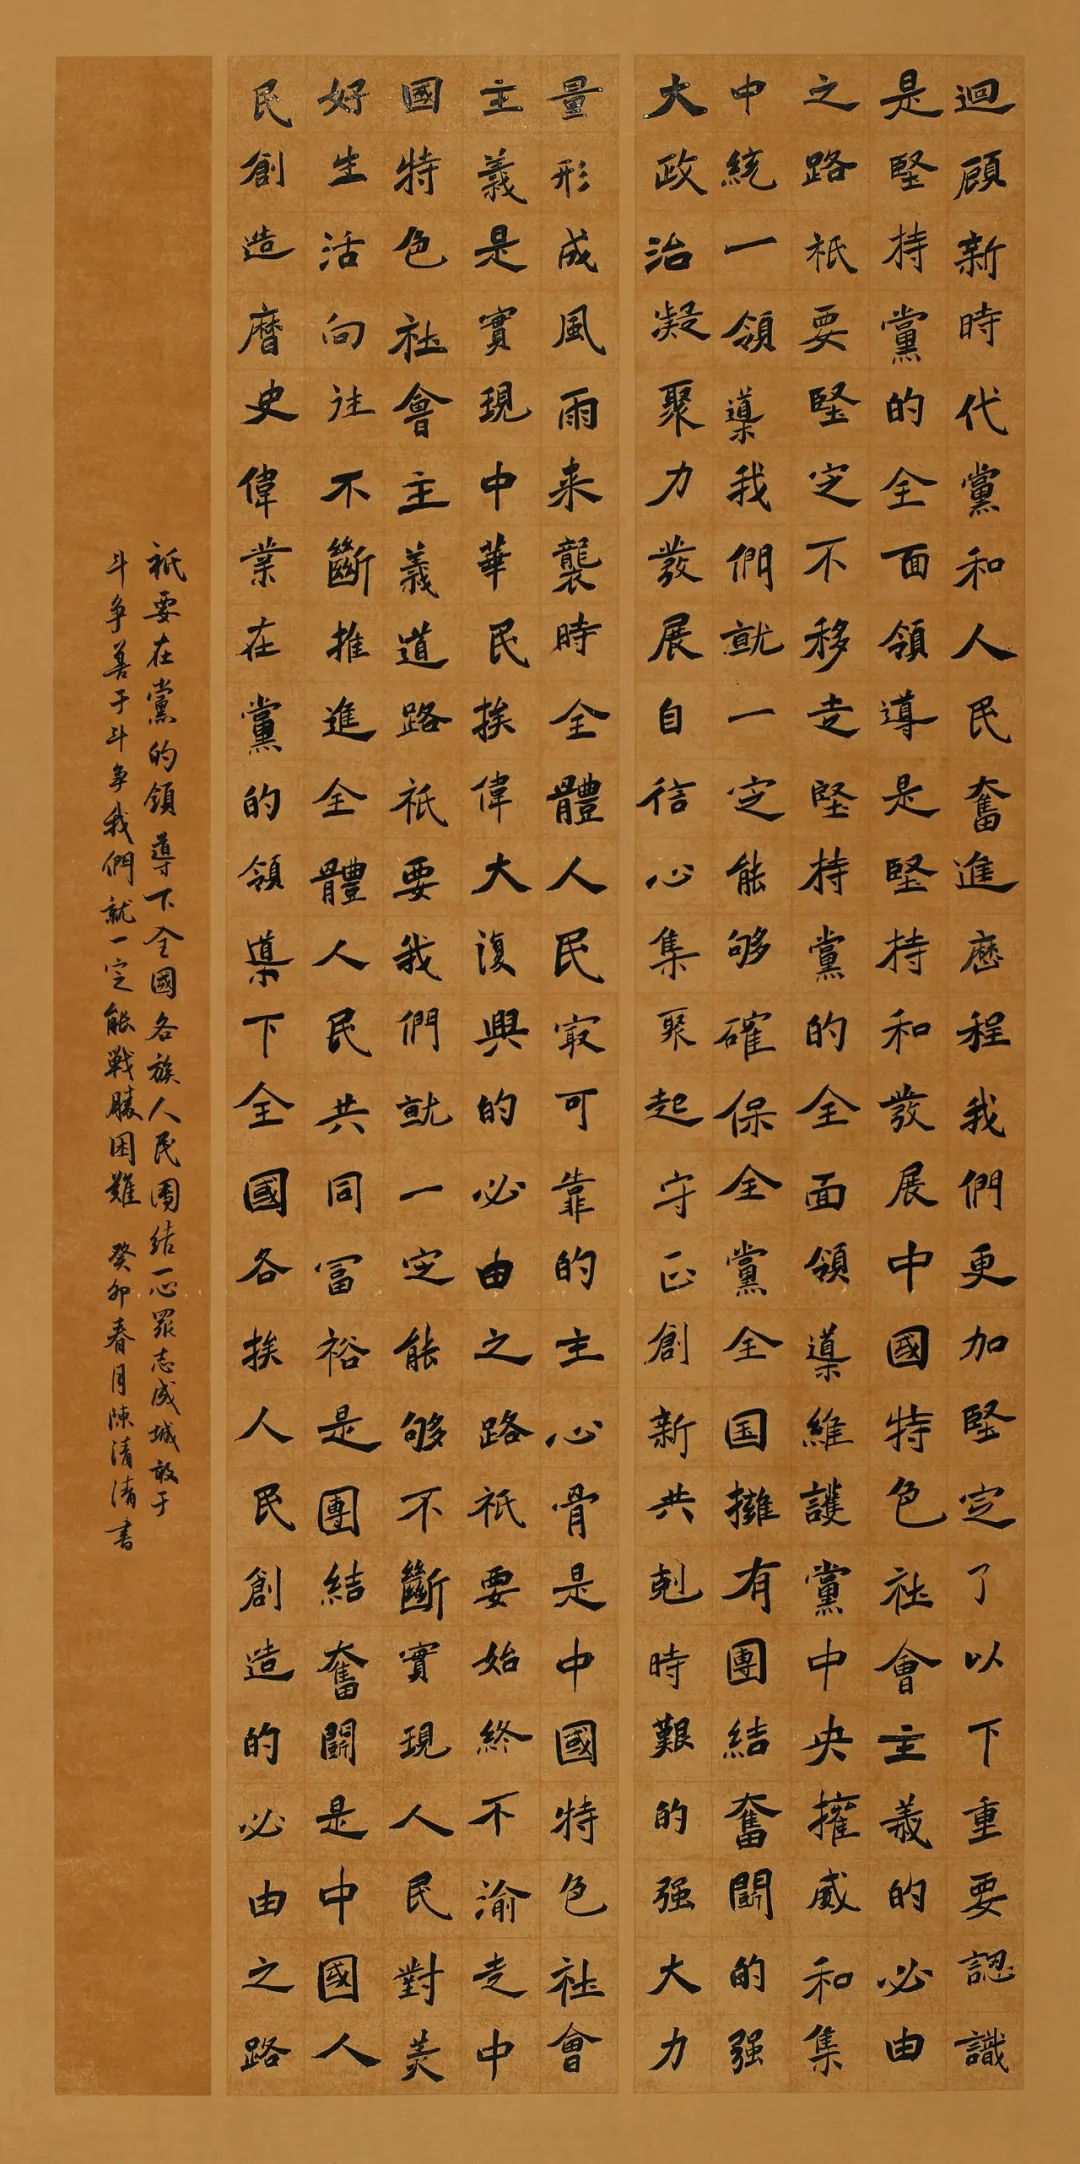 迴顧新時代黨和人民奮進歷程我們更加堅定了以下重要認識
是堅持黨的全面領導是堅持和發展中國特色社會主義的必由
之路祇要堅定不移走堅持黨的全面領導維護黨中央權威和集
中統一領導我們就一定能够確保全黨全国擁有團結奮鬪的强
大政治凝聚力發展自信心集聚起守正創新共剋時艱的强大力
量形成風雨来襲時全體人民冣可靠的主心骨是中國特色社會
主義是實現中華民族偉大復興的必由之路祇要始終不渝走中
國特色社會主義道路祇要我們就一定能够不斷實現人民對美
好生活向往不斷推進全體人民共同冨裕是團結奮鬪是中國人
民創造曆史偉業在黨的領導下全國各族人民創造的必由之路
祇要在黨的領導下全國各族人民團结一心眾志成城敢于
斗争善于斗争我們就一定能戰勝困難 癸卯春月陳清清書